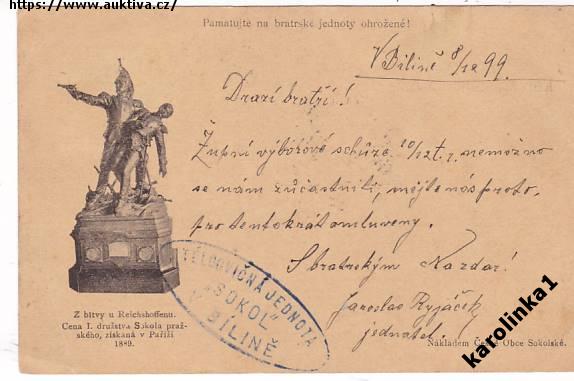 https://www.auktiva.cz/
Pamatujte na bratrské jednoty ohrožené!
V Bílině 8/12 99.
Drazí bratři!
Župní výborové schůze 10/12 t. r. nemožno
se nám zúčastniti, mějte nás proto,
pro tentokrát omluveny.
S bratrským Nazdar!
Jaroslav Ryjáček
jednatel.
TĚLOCVIČNÁ JEDNOTA
„SOKOL"
V BÍLINĚ
Z bitvy u Reichshoffenu.
Cena I. družstva Sokola praž-
ského, získaná v Paříži
1889.
Nákladem České Obce Sokolské.
karolinka1